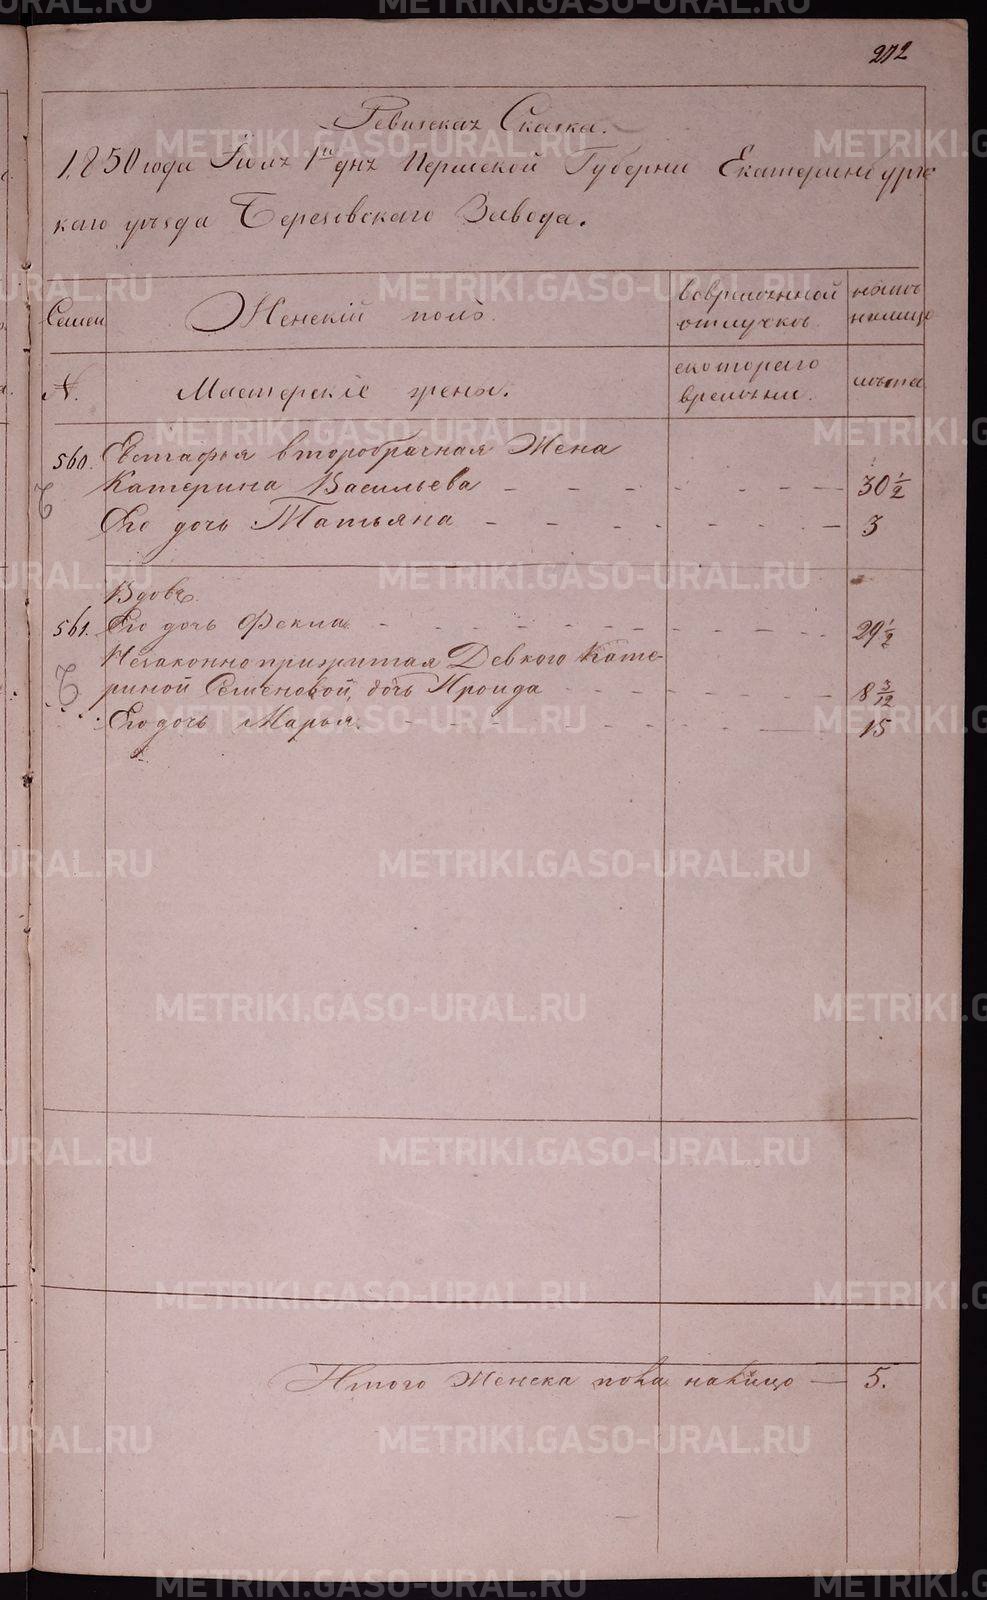 272
Ревизская Сказка.
1850 года Июля 1го дня Пермской Губернии Екатеринбургс
каго уезда Березовскаго Завода.
Семеи
Женскій полъ.
вовременной
отлучкѣ.
ныне
налицо
N.
Мастерскіе жены.
скотораго
времени.
лѣта
560. Евстафья второбрачная Жена
Катерина Васильева - - - - - - 30 1/2
Его дочь Татьяна - - - - - - 3
Вдовъ
561. Его дочь Фекла - - - - - - 29 1/2
Незаконно прижитая Девкою Кате-
риной Семеновой, дочь Ироида - - - - - 8 3/12
Его дочь Марья. - - - - - - 15
Итого Женска пола налицо — 5.
METRIKI.GASO-URAL.RU